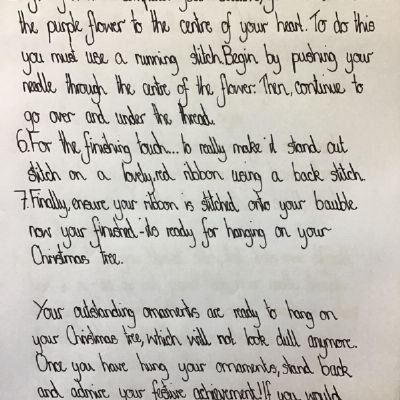 the purple flower to the centre of your heart. To do this
you must use a running stitch. Begin by pushing your
needle through the centre of the flower. Then, continue to
go over and under the thread.
6. For the finishing touch... to really make it stand out
stitch on a lovely, red ribbon using a back stitch.
7. Finally, ensure your ribbon is stitched onto your bauble
now your finished - its ready for hanging on your
Christmas tree.
Your outstanding ornaments are ready to hang on
your Christmas tree, which will not look dull anymore.
Once you have hung your ornaments, stand back
and admire your festive achievement! If you would